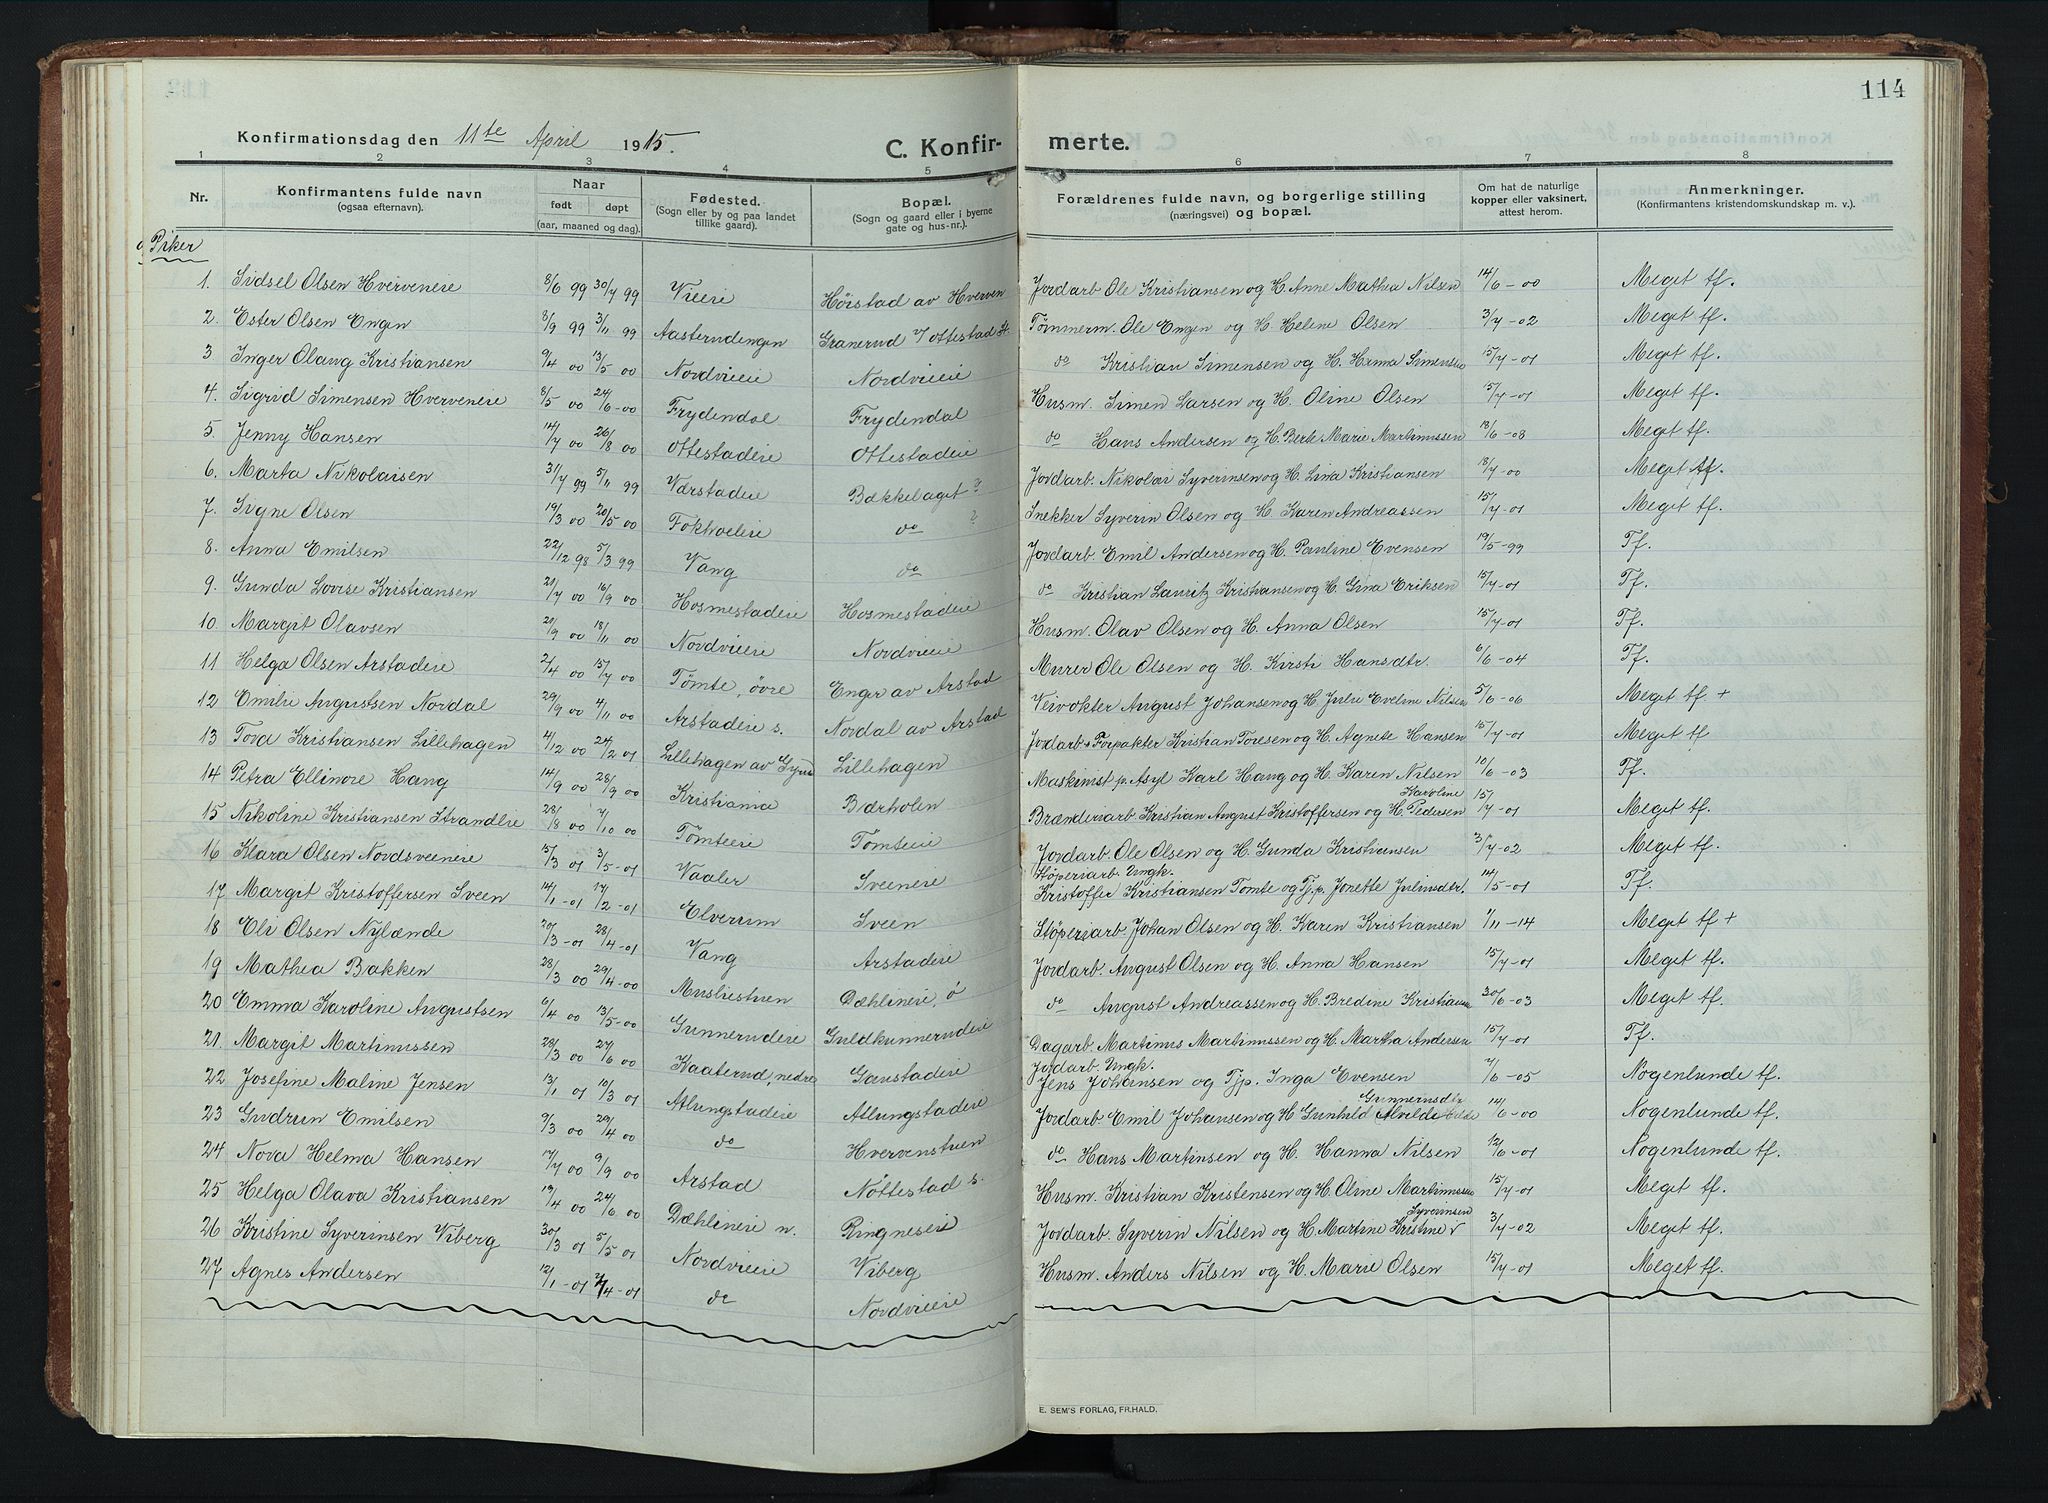 114
Konfirmationsdag den 11te April 1915.
C. Konfir- merte.
1 2 3 4 5 6 7 8
Nr. | Konfirmantens fulde navn (ogsaa efternavn). | Naar født døpt (aar, maaned og dag). | Fødested. (Sogn eller by og paa landet tillike gaard). | Bopæl. (Sogn og gaard eller i byerne gate og hus-nr.). | Forældrenes fulde navn, og borgerlige stilling (næringsvei) og bopæl. | Om hat de naturlige kopper eller vaksinert, attest herom. | Anmerkninger. (Konfirmantens kristendomskundskap m. v.).
Piker
1. Sidsel Olsen Hverveneie 8/6 99 30/7 99 Vieeie Høistad av Hverven Jordarb. Ole Kristiansen og H. Anne Mathea Nilsen 14/6-00 Meget tf.
2. Ester Olsen Engen 8/9 99 3/11 99 Aasterudengen Granerud Ottestad Tømmerm. Ole Engen og H. Helene Olsen 3/7-02 Meget tf.
3 Inger Olaug Kristiansen 9/4 00 13/5 00 Nordvieeie Nordvieeie do Kristian Simensen og H. Hanna Simensen 15/7-01 Meget tf.
4. Sigrid Simensen Hverveneie 8/5 00 24/6-00 Frydendal Frydendal Husm. Simen Larsen og H. Oline Olsen 15/7-01 Meget tf.
5. Jenny Hansen 14/7 00 26/8 00 Ottestadeie Ottestadeie do Hans Andersen og H. Berte Marie Martinussen 18/6-08 Meget tf.
6. Marta Nikolaisen 31/7 99 5/11 99 Vorstadeie Bækkelaget ? Jordarb. Nikolai Syverinsen og H. Lina Kristiansen 18/7-00 Meget tf.
7. Signe Olsen 19/3 00 20/5 00 Fokholeie do ? Snekker Syverin Olsen og H. Karen Andreassen 15/7-01 Meget tf.
8. Anna Emilsen 22/12 98 5/3 99 Vang do Jordarb. Emil Andersen og H. Pauline Evensen 19/5-99 Tf.
9. Gunda Lovise Kristiansen 21/7 00 16/9 00 Hosmestadeie Hosmestadeie do Kristian Lauritz Kristiansen og H. Gina Eriksen 15/7-01 Tf.
10. Margit Olavsen 20/9 00 18/11 00 Nordvieeie Nordvieeie Husm. Olav Olsen og H. Anna Olsen 15/7-01 Tf.
11 Helga Olsen Arstadeie 2/4 00 15/7 00 Tømte, øvre Enger av Arstad Murer Ole Olsen og H. Kirsti Hansdtr. 6/6-04 Tf.
12 Emilie Augustsen Nordal 29/9 00 4/11 00 Arstadeie s. Nordal av Arstad Veivokter August Johansen og H. Julie Eveline Nilsen 5/6-06 Meget tf +
13 Tova Kristiansen Lillehagen 4/12 00 24/2 01 Lillehagen av Lillehagen Jordarb + Forpakter Kristian Toresen og H. Agnete Hansen 15/7-01 Meget tf
14 Petra Ellinore Haug 14/9 00 28/9 00 Kristiania Bærholen Maskinist p. Asyl Karl Haug og H. Karen Nilsen 10/6-03 Tf.
15 Nikoline Kristiansen Strandlie 28/8 00 7/10 00 Tømteeie Tomteie Brænderiarb. Kristian August Kristoffersen og H. Karoline Pedersen 15/7-01 Meget tf.
16 Klara Olsen Nordsveeneie 15/3 01 3/5-01 Vaaler Sveeneie Jordarb. Ole Olsen og H. Gunda Kristiansen 3/7-02 Meget tf.
17 Margit Kristoffersen Sveen 14/1-01 17/2-01 Elverum Sveen Støperiarb. Ungk. Kristoffer Kristiansen Tomte og Tj.p. Jonette Juliusdtr. 14/5-01 Tf.
18 Eli Olsen Nylænde 20/3-01 28/4-01 Vang Arstadeie Støperiarb. Johan Olsen og H. Karen Kristiansen 9/11-14 Meget tf +
19 Mathea Bakken 28/3 00 29/4-00 Musliestuen Dæhlineie, ø Jordarb. August Olsen og H. Anna Hansen 15/7-01 Meget tf.
20 Emma Karoline Augustsen 6/4 00 13/5-00 Gunnerudeie Guldkunnerudeie do August Andreassen og H. Bredine Kristiansen 30/6-03 Meget tf.
21. Margit Martinussen 28/3 00 27/6 00 Kaaterud, nedre Gaustadeie Dagarb. Martinus Martinussen og H. Martha Andersen 15/7-01 Tf.
22 Josefine Maline Jensen 13/1 01 10/3 01 Atlungstadeie Atlungstadeie Jordarb. Ungk. Jens Johansen og Tjp. Inga Evensen 7/6-05 Nogenlunde tf.
23 Gudrun Emilsen 9/3 00 29/4 00 do Hvervenstuen Jordarb. Emil Johansen og H. Gunhild Alvilde Gunnerusdtr 14/6-00 Nogenlunde tf.
24 Nova Helma Hansen 17/7 00 9/9 00 Arstad Nøttestad s. do Hans Martinsen og H. Hanna Nilsen 12/6-01 Nogenlunde tf.
25 Helga Olava Kristiansen 13/4 00 24/6 00 Dæhlineie n. Ringneseie Husm. Kristian Kristensen og H. Oline Martinussen 15/7-01 Meget tf.
26 Kristine Syverinsen Viberg 30/3 01 5/5 01 Nordvieeie Viberg Jordarb. Syverin Nilsen og H. Martine Kristine Syverinsen 3/7-02 Meget tf.
27 Agnes Andersen 12/1-01 /4-01 do Nordvieeie Husm. Anders Nilsen og H. Marie Olsen 15/7-01 Meget tf.
E. SEM'S FORLAG, FR.HALD.